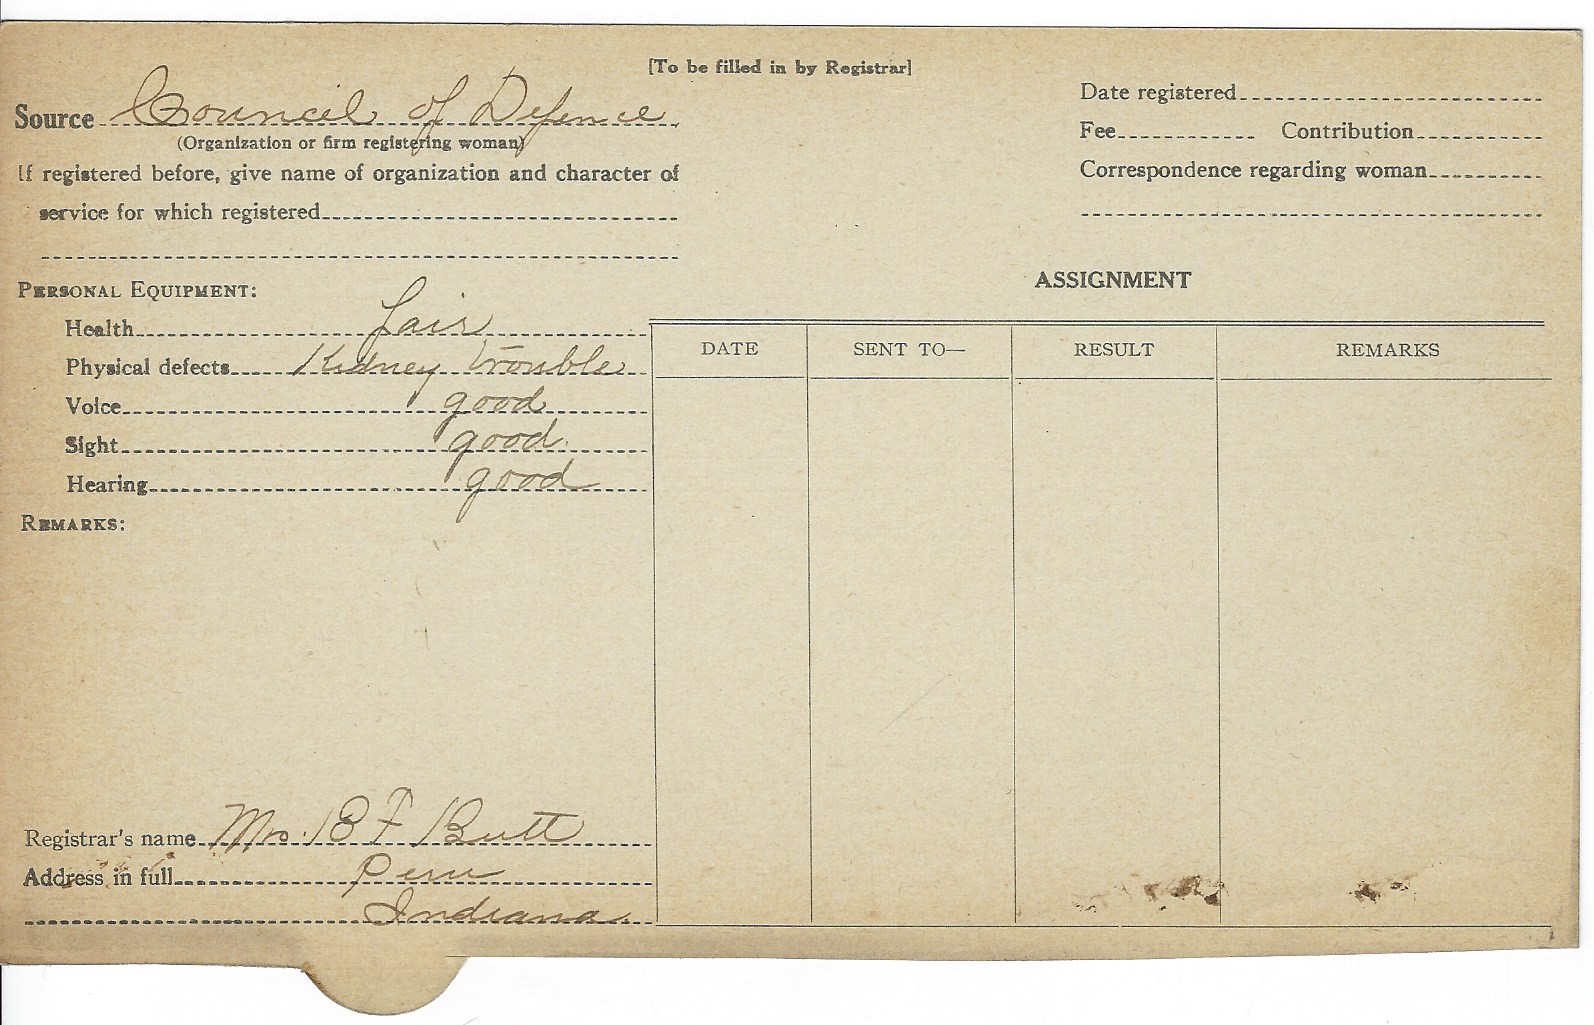 [To be filled in by Registrar]
Source Council of Defence
(Organization or firm registering woman)
If registered before, give name of organization and character of
service for which registered
Date registered
Fee Contribution
Correspondence regarding woman
PERSONAL EQUIPMENT:
Health fair
Physical defects Kidney trouble
Voice good
Sight good
Hearing good
REMARKS:
ASSIGNMENT
DATE SENT TO— RESULT REMARKS
Registrar's name Mrs. B F Butt
Address in full Peru
Indiana